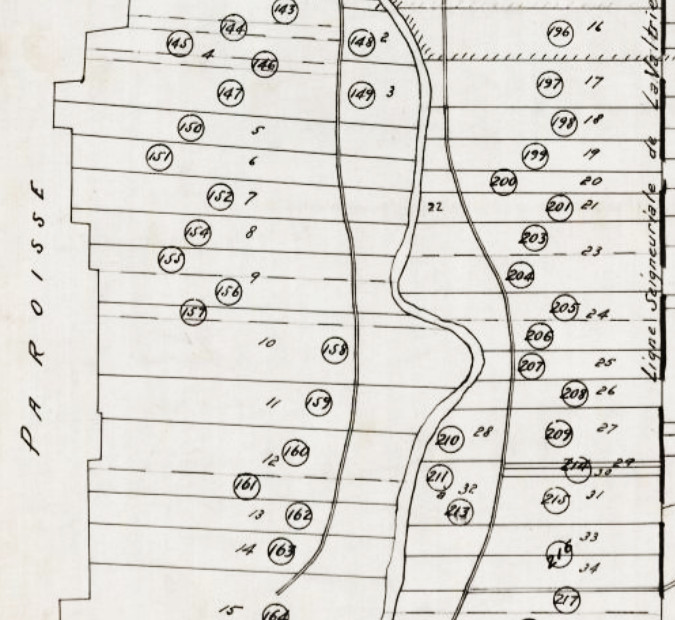 143
144
145
4
146
147
148 2
149 3
150 5
151 6
152 7
154 8
155
9
156
157
10
158
11 159
12 160
161
13 162
14 163
15 164
PAROISSE
22
196 16
197 17
198 18
199 19
200 20
201 21
203
23
204
205
24
206
207 25
208 26
209 27
210 28
211
32
213
214 29
30
215 31
216 33
34
217
Ligne Seigneuriale de LaValtrie